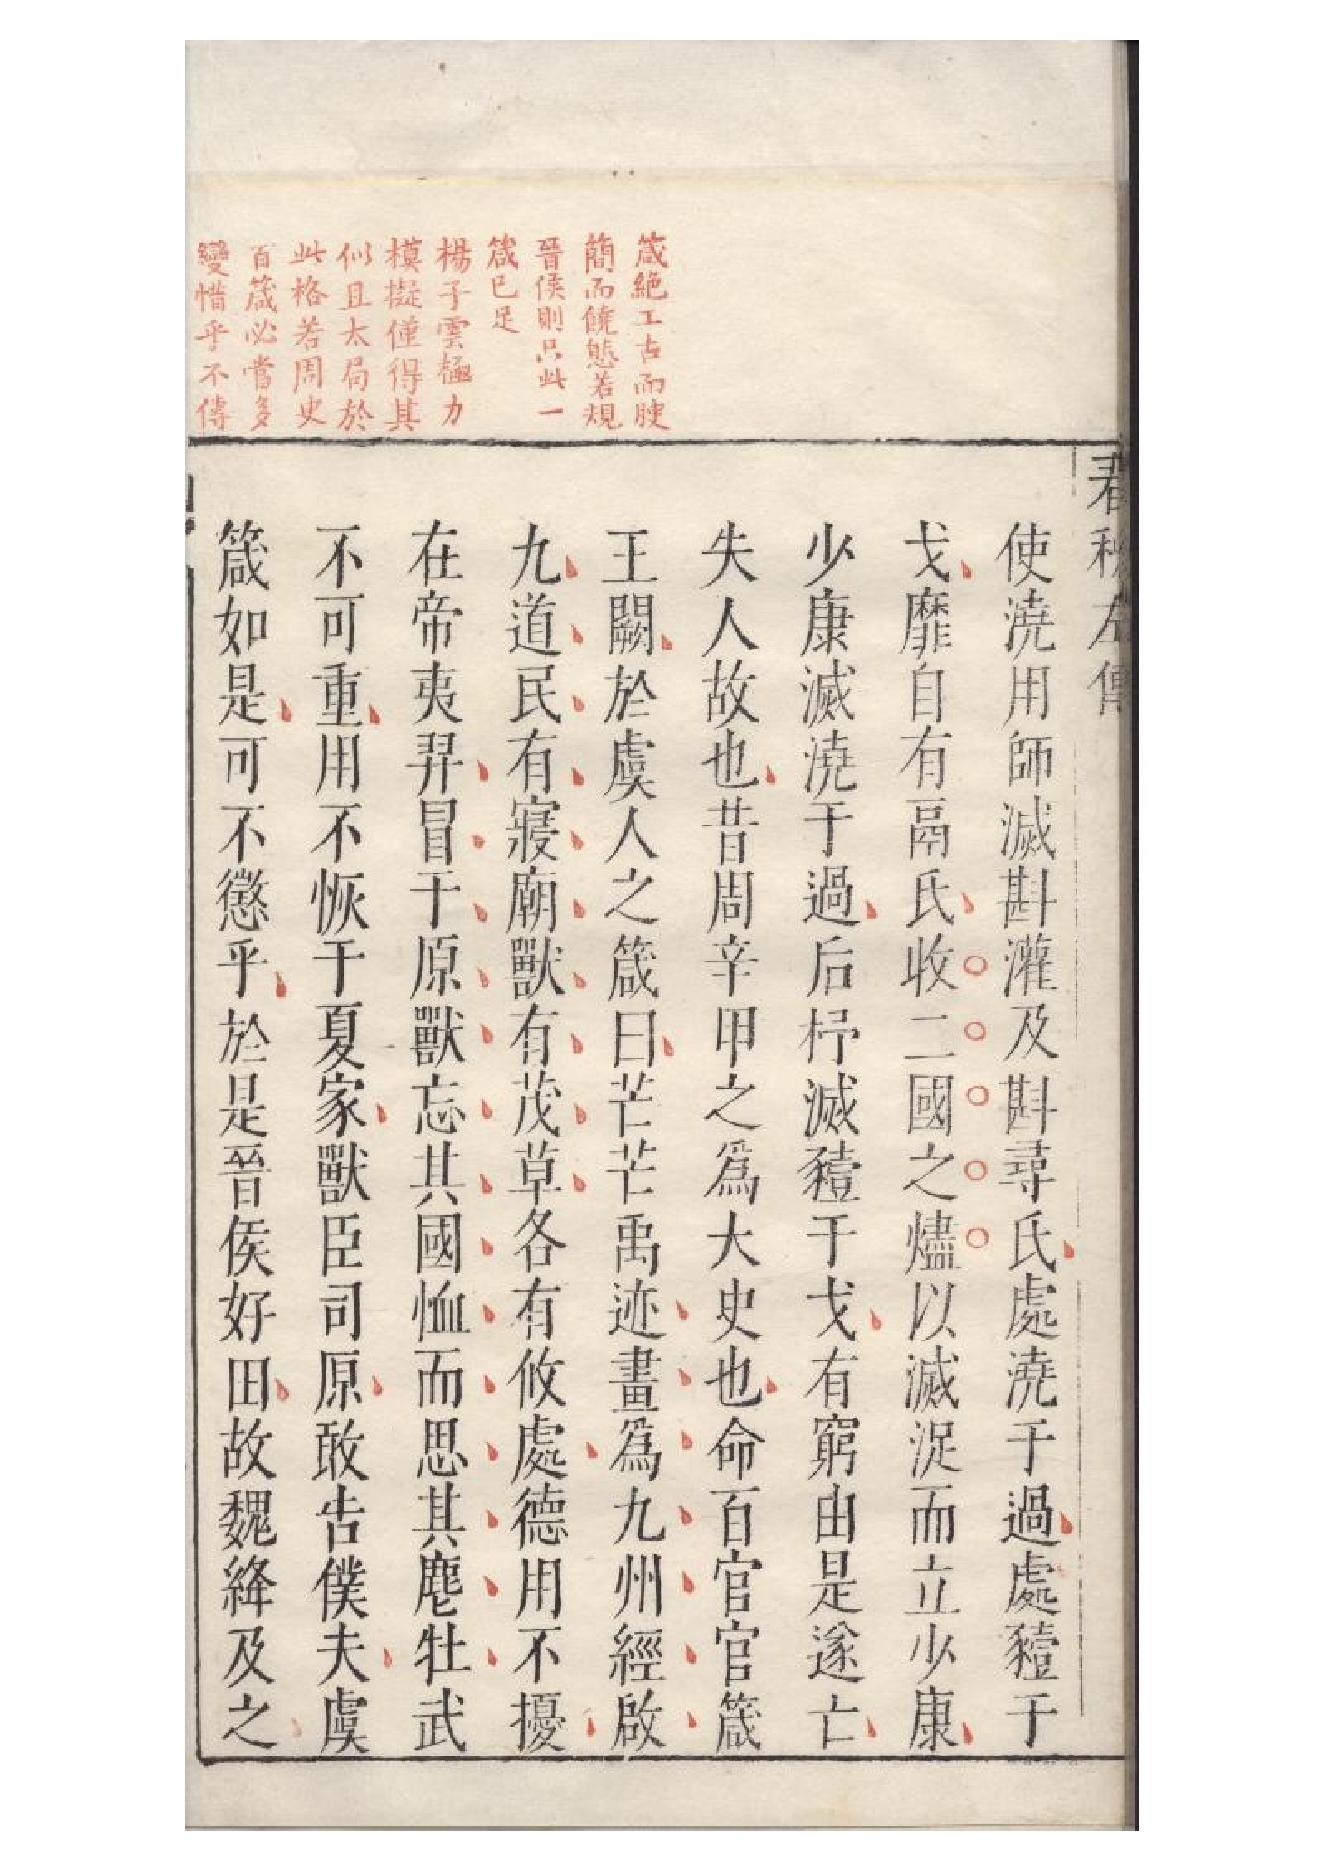 春秋左傳
使澆用師滅斟灌及斟尋氏處澆于過處豷于
戈靡自有鬲氏收二國之燼以滅浞而立少康
少康滅澆于過后杼滅豷于戈有窮由是遂亡
失人故也昔周辛甲之爲大史也命百官官箴
王闕於虞人之箴曰芒芒禹迹畫爲九州經啟
九道民有寢廟獸有茂草各有攸處德用不擾
在帝夷羿冒于原獸忘其國恤而思其麀牡武
不可重用不恢于夏家獸臣司原敢告僕夫虞
箴如是可不懲乎於是晉侯好田故魏絳及之
箴絕工古而腴
簡而饒態若規
晉侯則只此一
箴已足
楊子雲極力
模擬僅得其
似且太局於
此格若周史
百箴必嘗多
變惜乎不傳